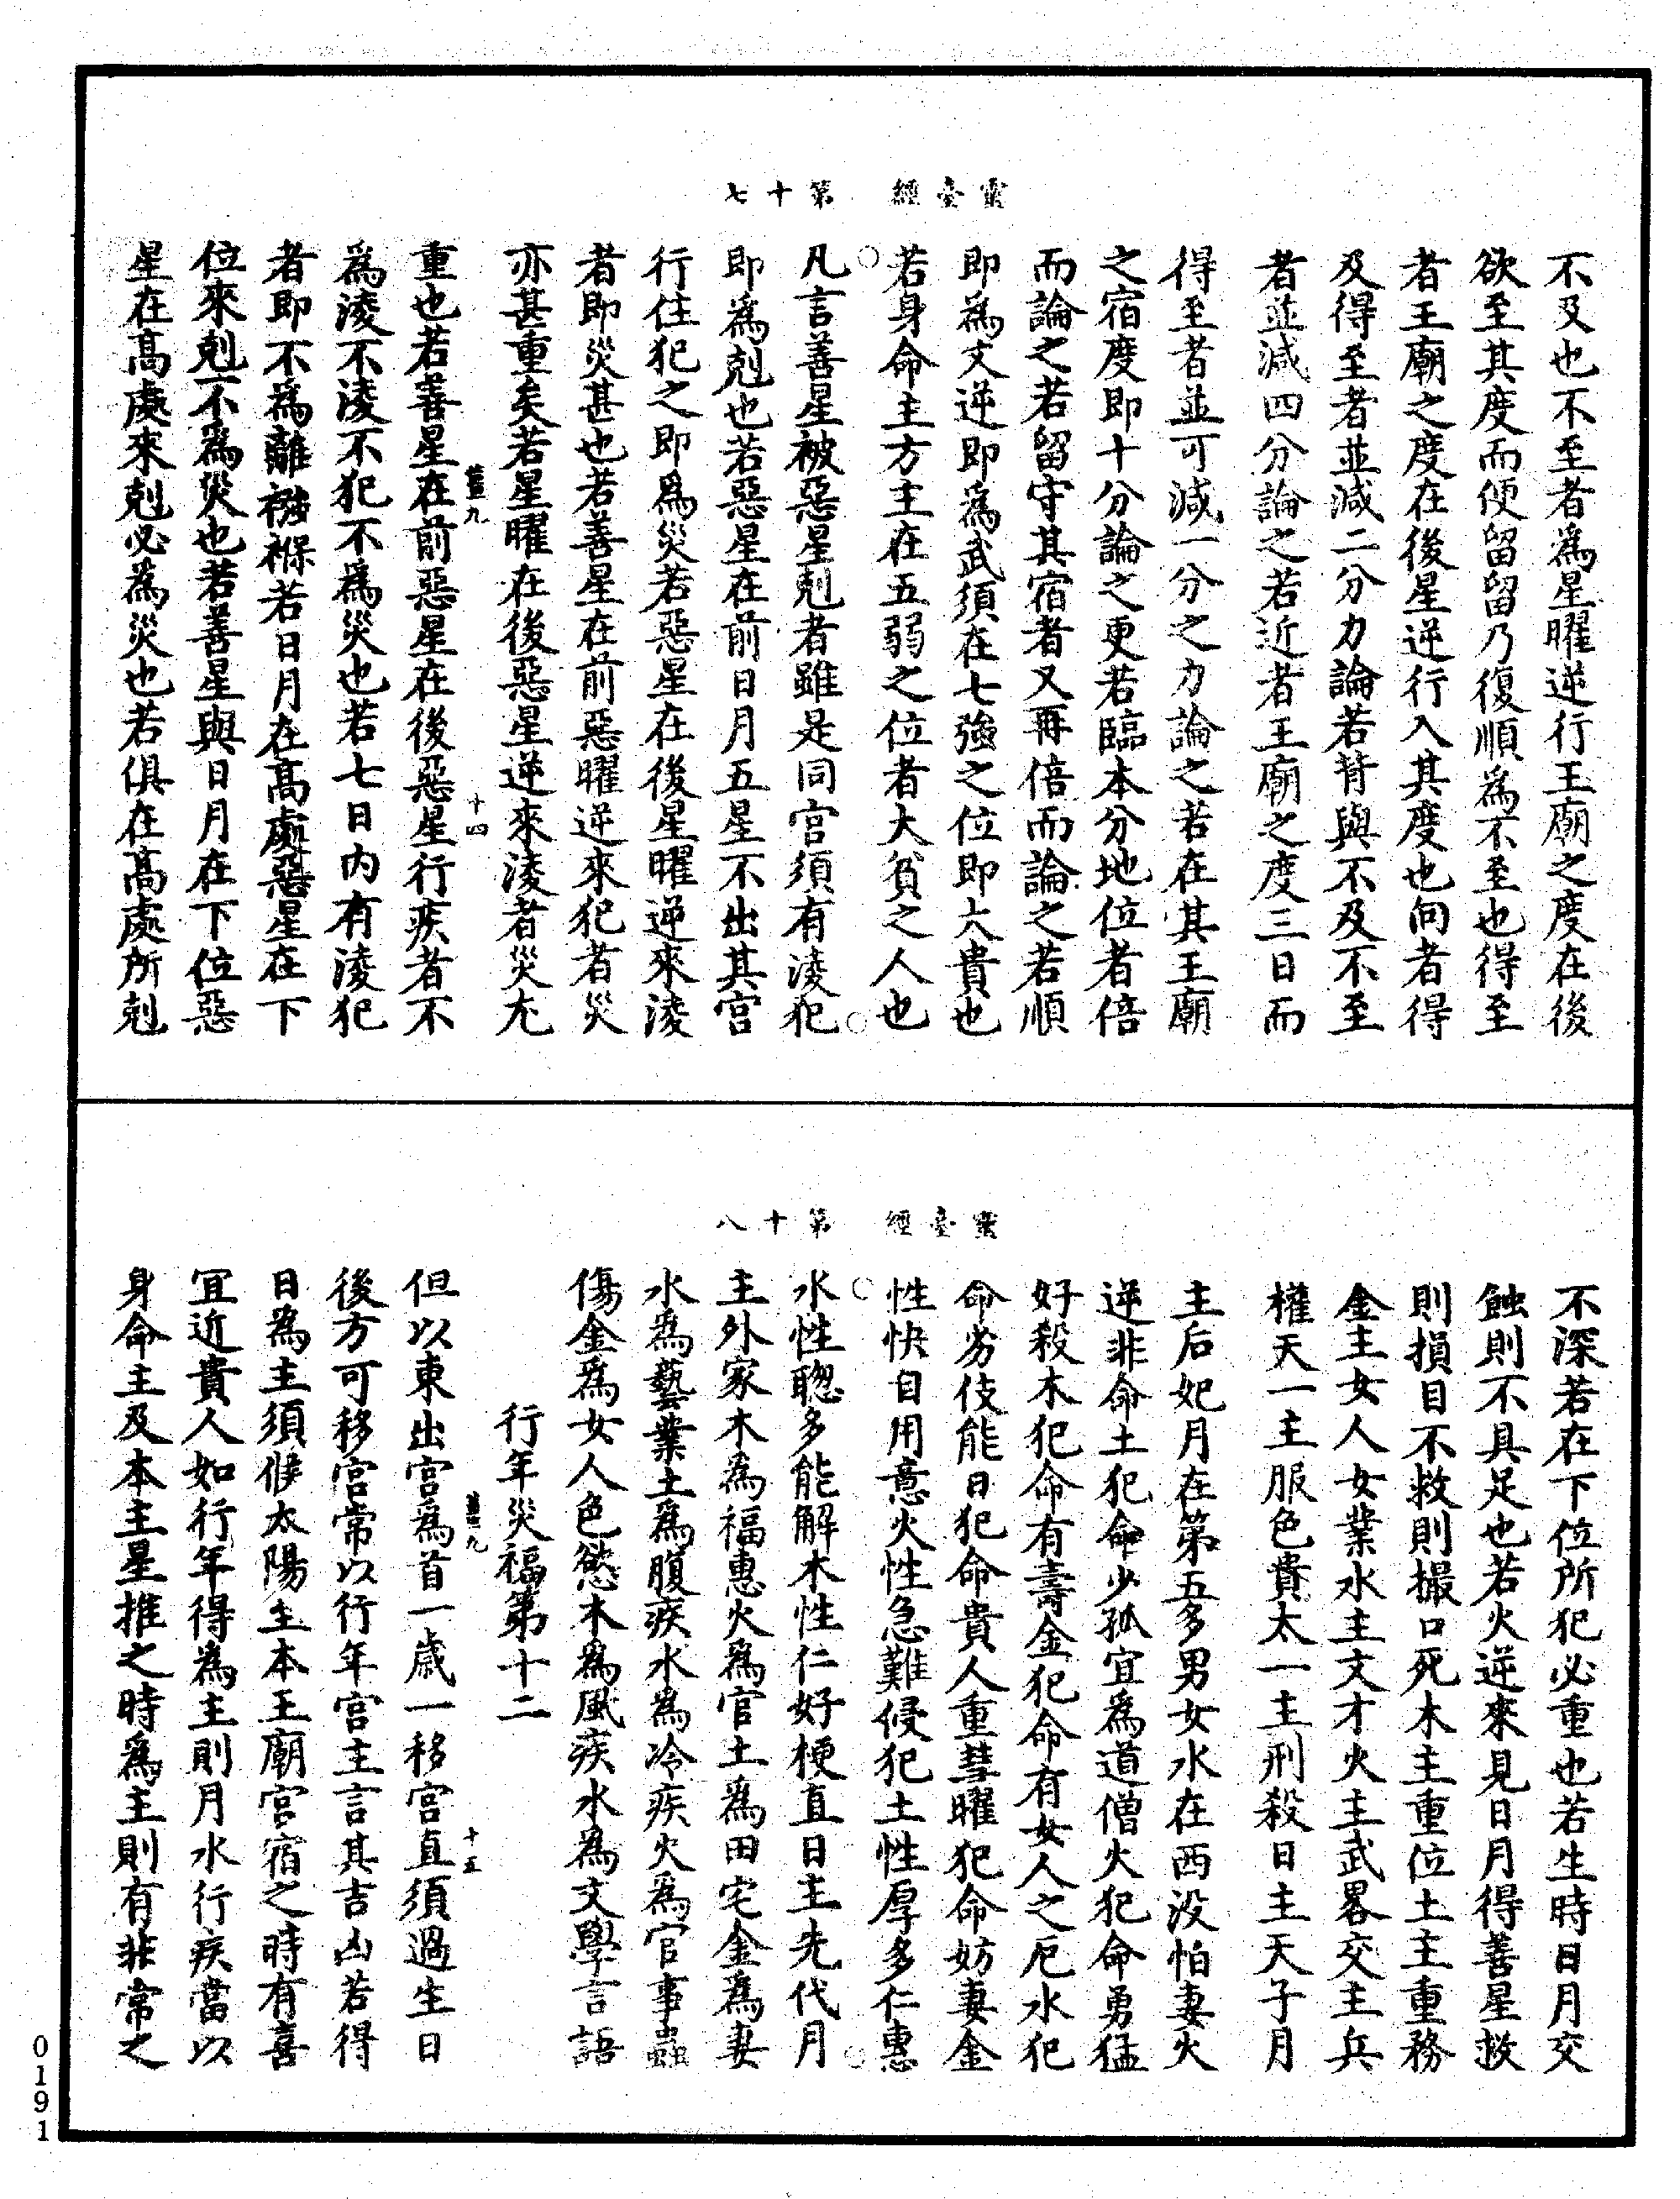 靈臺經　第十七
不及也不至者為星曜逆行王廟之度在後
欲至其度而便留留乃復順為不至也得至
者王廟之度在後星逆行入其度也向者得
及得至者並減二分力論若背與不及不至
者並減四分論之若近者王廟之度三日而
得至者並可減一分之力論之若在其王廟
之宿度即十分論之更若臨本分地位者倍
而論之若留守其宿者又再倍而論之若順
即為文逆即為武須在七強之位即大貴也
若身命主方主在五弱之位者大貧之人也
凡言善星被惡星剋者雖是同宮須有淩犯
即為剋也若惡星在前日月五星不出其宮
行住犯之即為災若惡星在後星曜逆來淩
者即災甚也若善星在前惡曜逆來犯者災
亦甚重矣若星曜在後惡星逆來淩者災尤
重也若善星在前惡星在後惡星行疾者不
十四
為淩不淩不犯不為災也若七日內有淩犯
者即不為離襁褓若日月在高處惡星在下
位來剋不為災也若善星與日月在下位惡
星在高處來剋必為災也若俱在高處所剋
靈臺經　第十八
不深若在下位所犯必重也若生時日月交
蝕則不具足也若火逆來見日月得善星救
則損目不救則撮口死木主重位土主重務
金主女人女業水主文才火主武畧交主兵
權天一主服色貴太一主刑殺日主天子月
主后妃月在第五多男女水在西沒怕妻火
逆非命土犯命少孤宜為道僧火犯命勇猛
好殺木犯命有壽金犯命有女人之厄水犯
命劣伎能日犯命貴人重彗曜犯命妨妻金
性快自用意火性急難侵犯土性厚多仁惠
水性聰多能解木性仁好梗直日主先代月
主外家木為福惠火為官土為田宅金為妻
水為藝業土為腹疾水為冷疾火為官事蟲
傷金為女人色慾木為風疾水為文學言語
行年災福第十二
但以東出宮為首一歲一移宮直須過生日
十五
後方可移宮常以行年宮主言其吉凶若得
日為主須候太陽生本王廟宮宿之時有喜
宜近貴人如行年得為主則月水行疾當以
身命主及本主星推之時為主則有非常之
0191